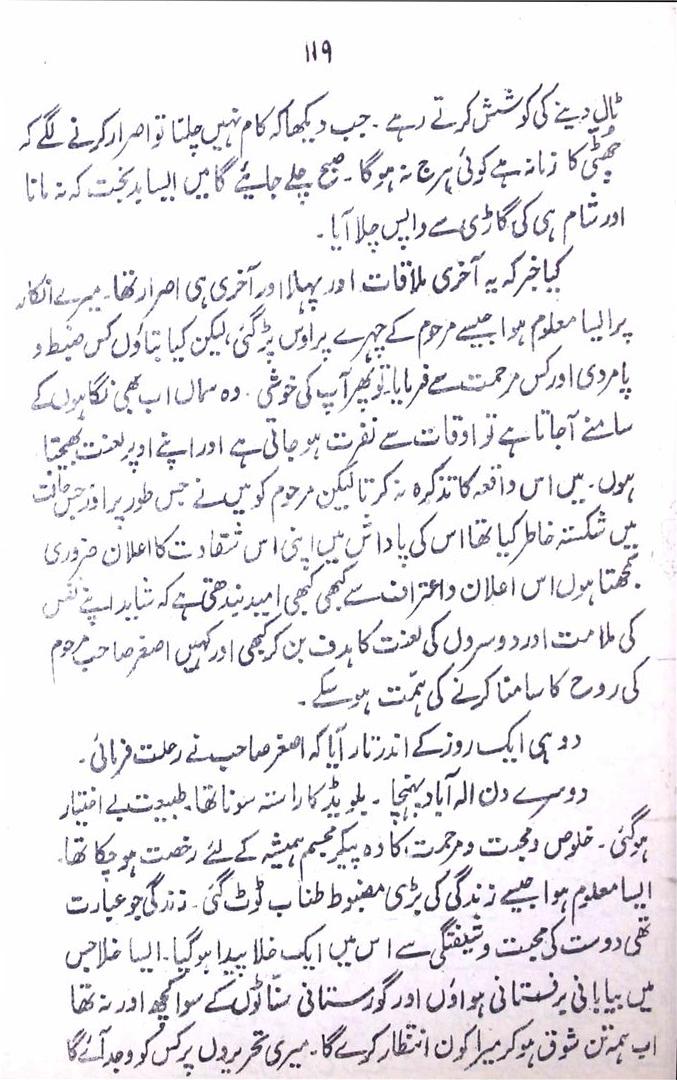 ۱۱۹
ٹال دینے کی کوشش کرتے رہے ۔ جب دیکھا کہ کام نہیں چلتا تو اصرار کرنے لگے کہ
چھٹی کا زمانہ ہے کوئی ہرج نہ ہوگا ۔ صبح چلے جایئے گا میں ایسا بدبخت کہ نہ مانا
اور شام ہی کی گاڑی سے واپس چلا آیا ۔
کیا خبر کہ یہ آخری ملاقات اور پہلا اور آخری ہی اصرار تھا ۔ میرے انکار
پر ایسا معلوم ہوا جیسے مرحوم کے چہرے پر اوس پڑ گئی، لیکن کیا بتاؤں کس ضبط و
پامردی اور کس مرحمت سے فرمایا۔ تو پھر آپ کی خوشی ۔ وہ سماں اب بھی نگاہوں کے
سامنے آجاتا ہے تو اوقات سے نفرت ہو جاتی ہے اور اپنے اوپر لعنت بھیجتا
ہوں ۔ میں اس واقعہ کا تذکرہ نہ کرتا لیکن مرحوم کو میں نے جس طور پر اور جس حالت
میں شکستہ خاطر کیا تھا اس کی پاداش میں اپنی اس شقادت کا اعلان ضروری
سمجھتا ہوں اس اعلان و اعتراف سے کبھی کبھی امید بندھتی ہے کہ شاید اپنے نفس
کی ملامت اور دوسروں کی لعنت کا ہدف بن کر کبھی اور کہیں اصغر صاحب مرحوم
کی روح کا سامنا کرنے کی ہمّت ہو سکے ۔
دو ہی ایک روز کے اندر تار آیا کہ اصغر صاحب نے رحلت فرمائی ۔
دوسرے دن الہ آباد پہنچا ۔ بلویڈر کا راستہ سونا تھا۔ طبیعت بے اختیار
ہوگئی ۔ خلوص و محبت و مرحمت کا وہ پیکر مجسم ہمیشہ کے لئے رخصت ہو چکا تھا۔
ایسا معلوم ہوا جیسے زندگی کی بڑی مضبوط طناب ٹوٹ گئی ۔ زندگی جو عبارت
تھی دوست کی محبت و شیفتگی سے اس میں ایک خلا پیدا ہوگیا۔ ایسا خلا جس
میں بیابانی برفستانی ہواؤں اور گورستانی سنّاٹوں کے سوا کچھ اور نہ تھا
اب ہمہ تن شوق ہو کر میرا کون انتظار کرے گا ۔ میری تحریروں پر کس کو وجد آئے گا